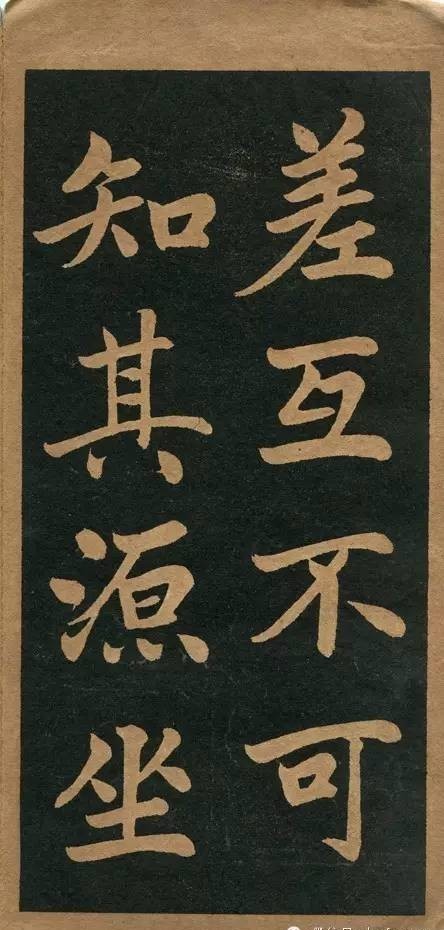 差互不可
知其源坐